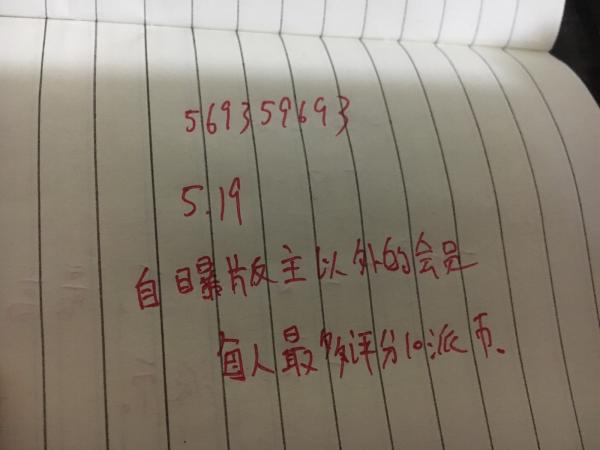 569359693
5.19
自曝版主以外的会员
每人最多评分10派币.